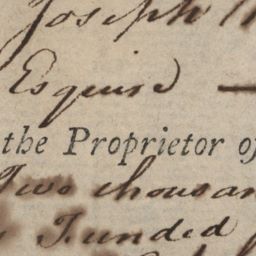 Joseph
Esquire —
the Proprietor of
Two thousan
Funded